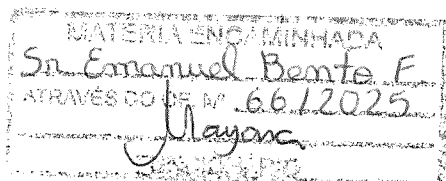 MATÉRIA ENCAMINHADA
Sr. Emanuel Bente F
ATRAVÉS DO OF Nº 66/2025
Mayara